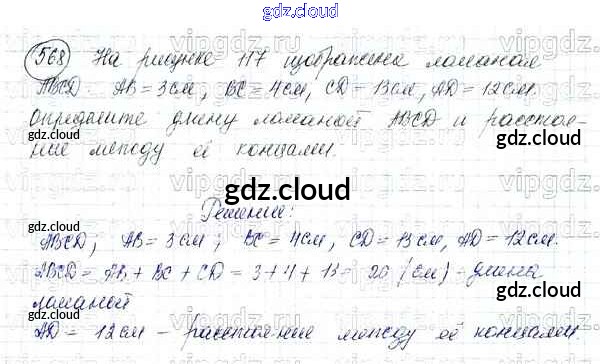 gdz.cloud
568 На рисунке 117 изображена ломаная
gdz.cloud gdz.cloud
ABCD. AB = 3 см, BC = 4 см, CD = 13 см, AD = 12 см.
Определите длину ломаной ABCD и расстоя-
gdz.cloud gdz.cloud
ние между её концами.
gdz.cloud
Решение:
gdz.cloud gdz.cloud
ABCD; AB = 3 см; BC = 4 см, CD = 13 см, AD = 12 см.
ABCD = AB + BC + CD = 3 + 4 + 13 = 20 (см) - длина
ломаной
gdz.cloud gdz.cloud
AD = 12 см - расстояние между её концами.
gdz.cloud